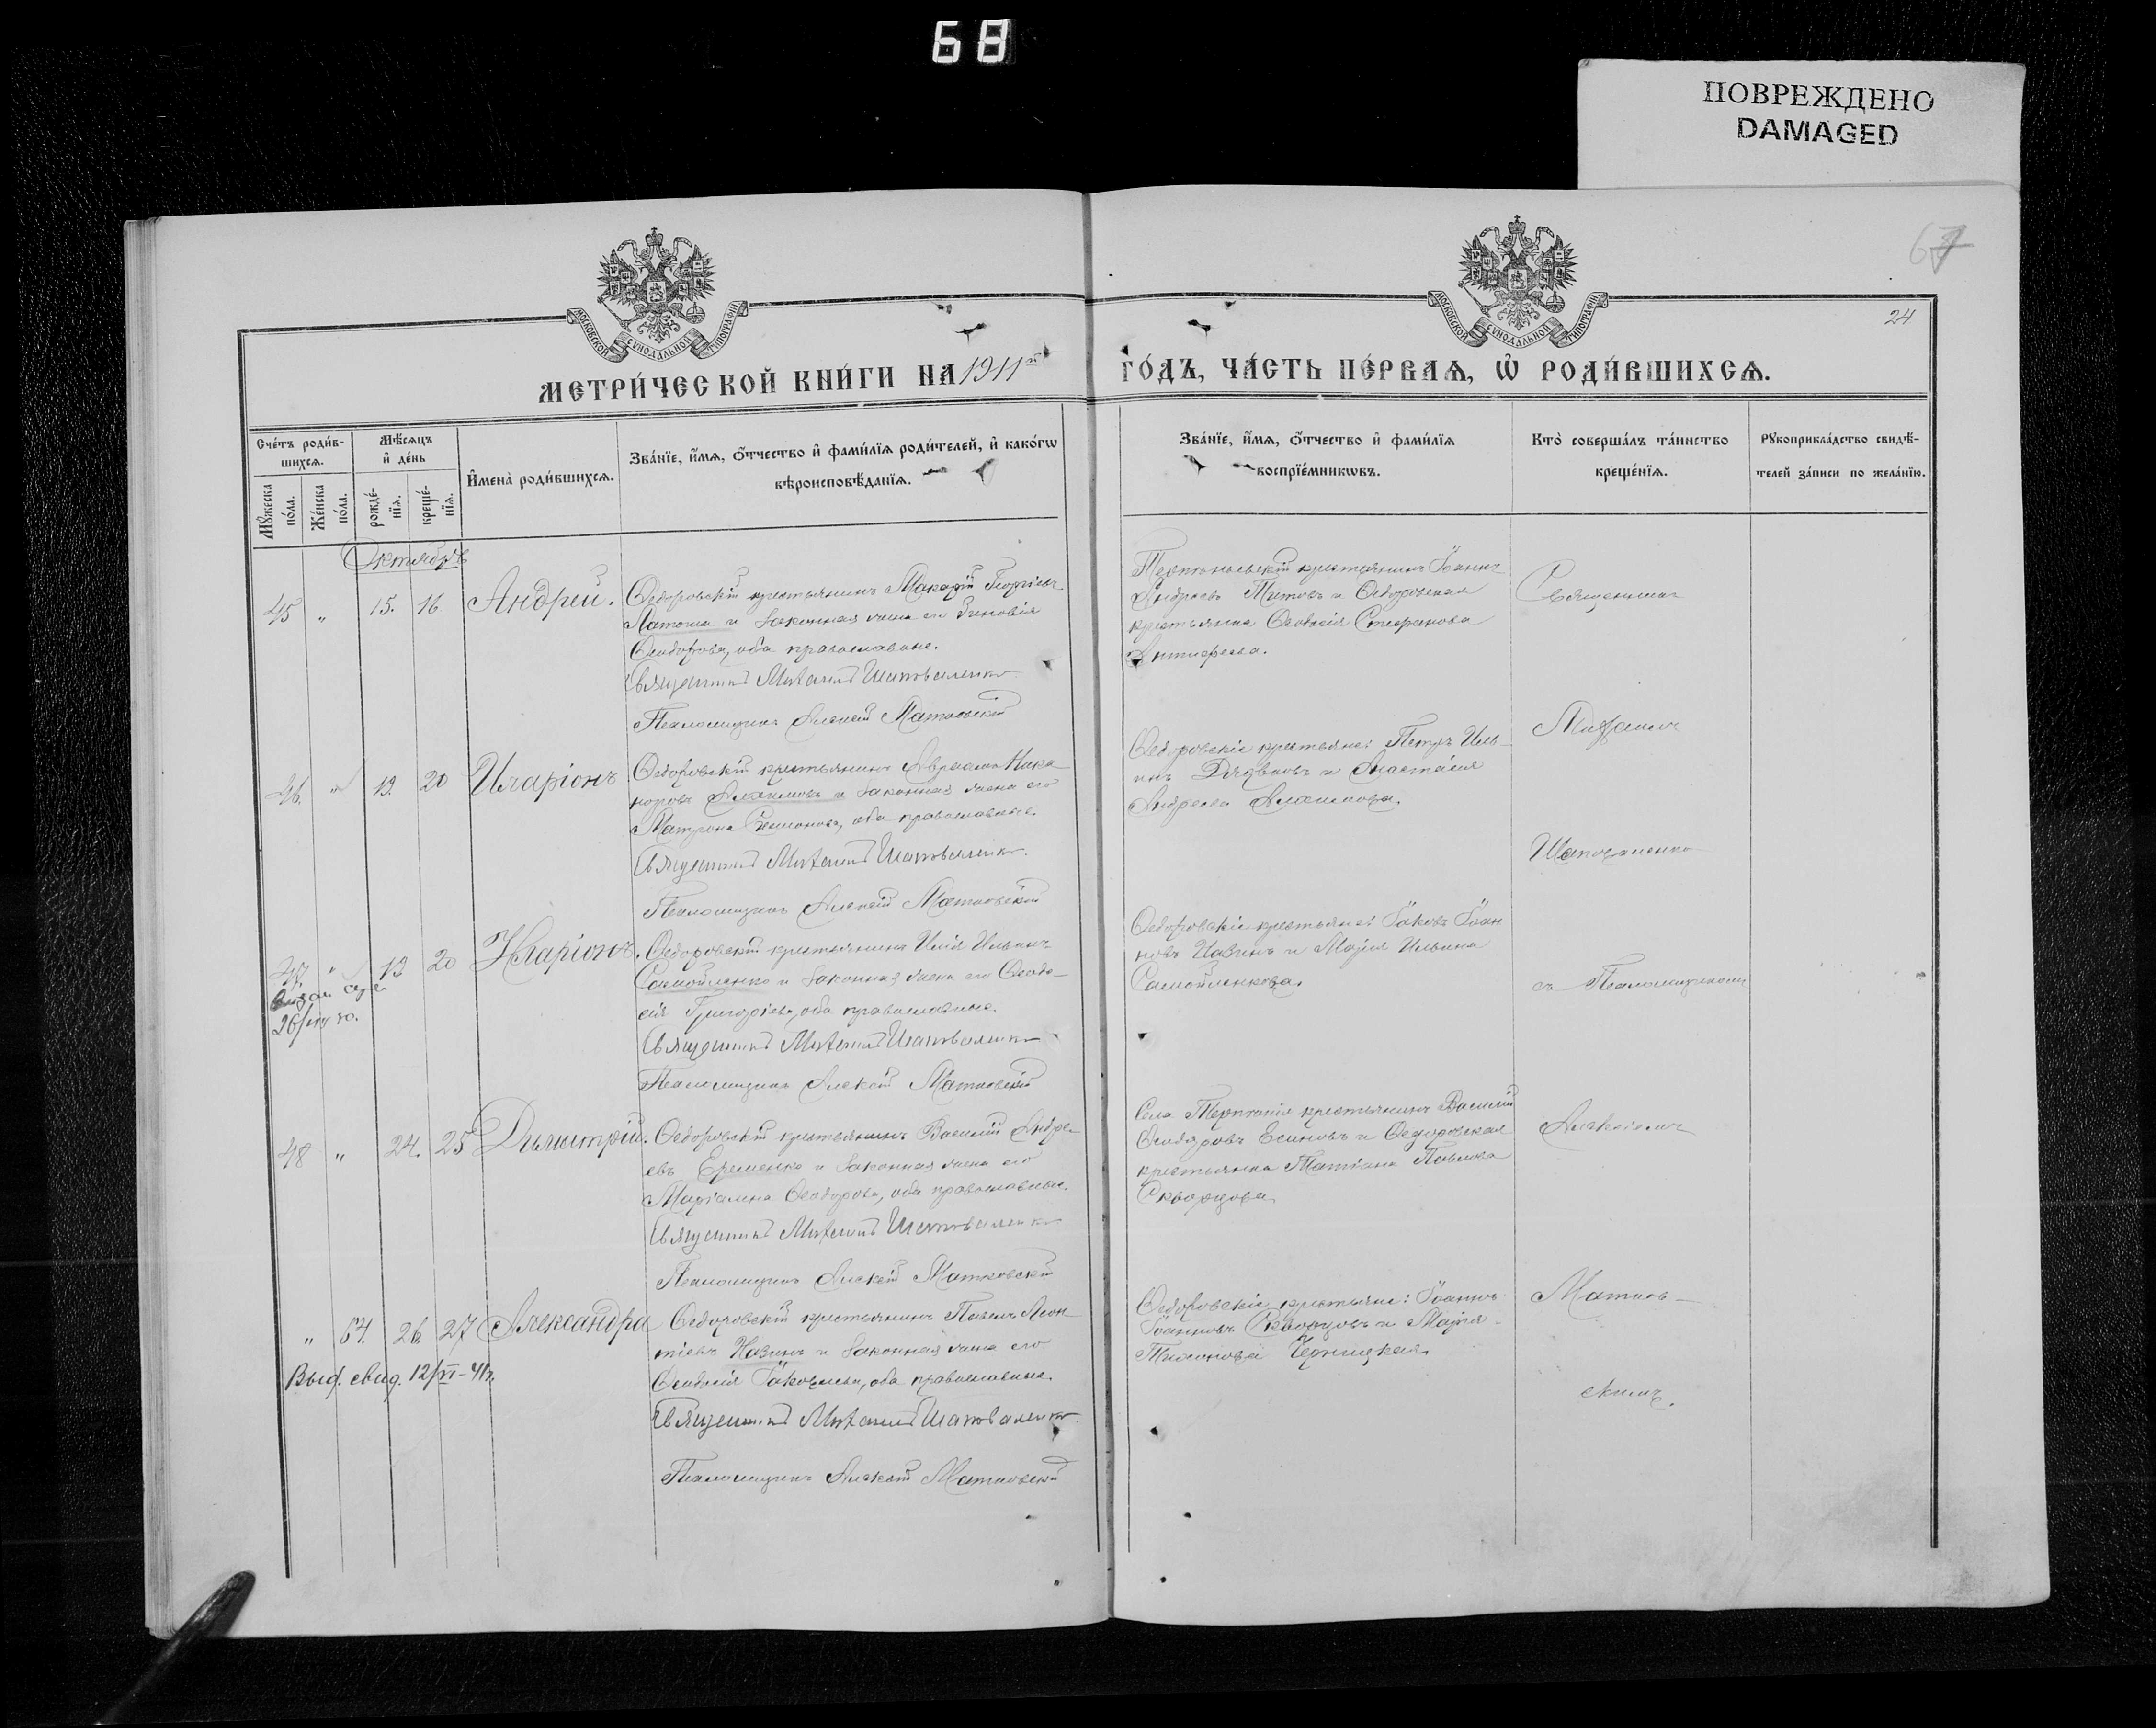 68
ПОВРЕЖДЕНО
DAMAGED
67
24
МОСКОВСКОЙ СУНОДАЛЬНОЙ ТИПОГРАФІИ
МОСКОВСКОЙ СУНОДАЛЬНОЙ ТИПОГРАФІИ
МЕТРИ́ЧЕСКОЙ КНИ́ГИ НА 1911й ГО́ДЪ, ЧА́СТЬ ПЕ́РВАѦ, Ѡ҆ РОДИ́ВШИХСѦ.
Сче́тъ роди́в-
шихсѧ.
Мѣ́сѧцъ
и҆ де́нь
Мꙋ́жеска по́ла.
Же́нска по́ла.
рожде́-нїѧ.
креще́-нїѧ.
И҆мена̀ роди́вшихсѧ.
Зва́нїе, и҆́мѧ, ѻ҆́тчество и҆ фами́лїѧ роди́телей, и҆ како́гѡ
вѣроисповѣ́данїѧ.
Зва́нїе, и҆́мѧ, ѻ҆́тчество и҆ фами́лїѧ
воспрїе́мникѡвъ.
Кто̀ соверша́лъ та́инство
креще́нїѧ.
Рꙋкоприкла́дство свидѣ́-
телей за́писи по жела́нїю.
Октябрь
45 " 15. 16. Андрей.
Ѳедоровскій крестьянинъ Макарій Георгіевъ
Латоша и законная жена его Зиновія
Ѳеодорова, оба православные.
Священникъ Михаилъ Шаповаленко
Псаломщикъ Алексій Матковскій
крестьянинъ Іоаннъ
Андреевъ Титовъ и Ѳедоровская
крестьянка Ѳеодосія Стефанова
Антифеева.
Священникъ
46. " 19. 20 Иларіонъ
Ѳедоровскій крестьянинъ Авраамъ Ника-
норовъ и законная жена его
Матрона Симонова, оба православные.
Священникъ Михаилъ Шаповаленко.
Псаломщикъ Алексій Матковскій
Ѳедоровскіе крестьяне: Петръ Иль-
инъ и Анастасія
Андреева
Михаилъ
Шаповаленко
47 " 19 20 Иларіонъ.
26/
Ѳедоровскій крестьянинъ Илія Ильинъ
Самойленко и законная жена его Ѳеодо-
сія Григоріева, оба православные.
Священникъ Михаилъ Шаповаленко
Псаломщикъ Алексій Матковскій
Ѳедоровскіе крестьяне: Іаковъ Іоан-
новъ Назинъ и Марія Ильина
Самойленкова.
съ Псаломщикомъ
48 " 24. 25 Димитрій.
Ѳедоровскій крестьянинъ Василій Андре-
евъ Еременко и законная жена его
Маріамна Ѳеодорова, оба православные.
Священникъ Михаилъ Шаповаленко
Псаломщикъ Алексій Матковскій
Села крестьянинъ Василій
Ѳеодоровъ Есиновъ и Ѳедоровская
крестьянка Татіана Павлова
Скворцова.
Алексіемъ
" 54. 26. 27 Александра
Выд. свид. 12/VI-41г.
Ѳедоровскій крестьянинъ Павелъ Леон-
тіевъ Назинъ и законная жена его
Ѳеодосія Іаковлева, оба православные.
Священникъ Михаилъ Шаповаленко.
Псаломщикъ Алексій Матковскій
Ѳедоровскіе крестьяне: Іоаннъ
Іоанновъ Скворцовъ и Марія
Тимонова Черницкая
Матков-
скимъ.